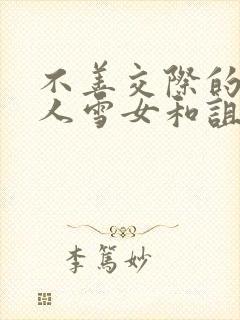 不善交際的
人雪女和詛
李篤妙